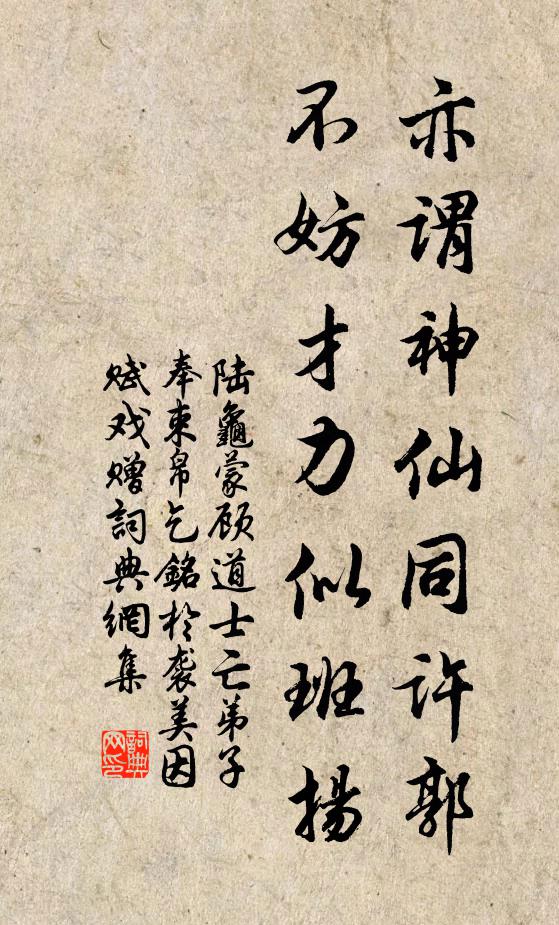 亦谓神仙同许郭
不妨才力似班揚
陆龜蒙顾道士亡弟子
奉束帛乞銘於袭美因
赋戏赠詞典網集
詞典网印